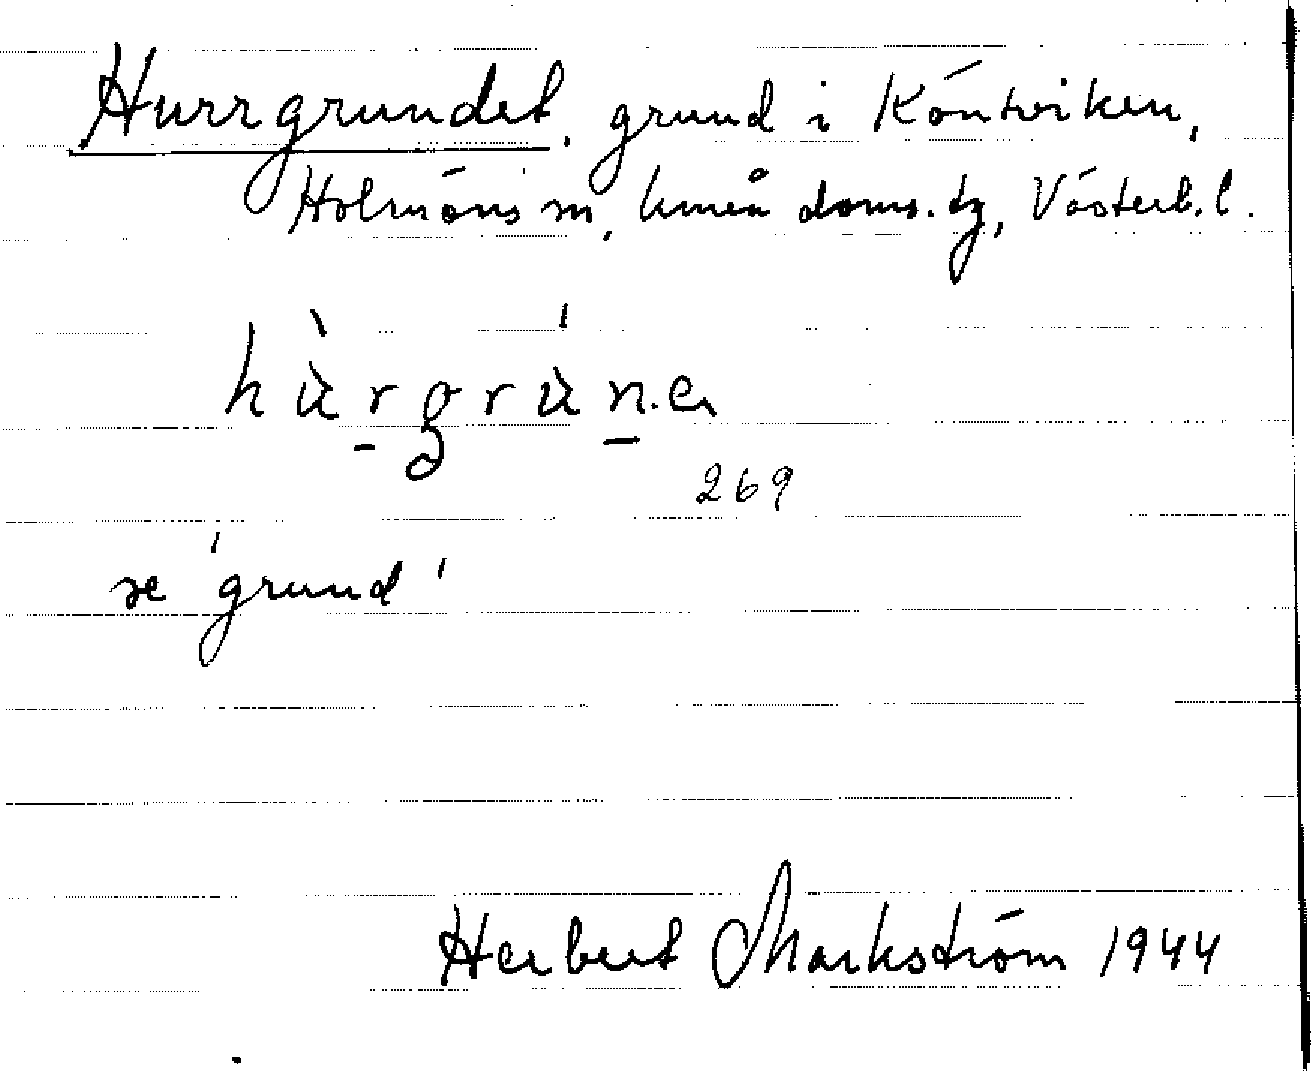 Hurrgrundet, grund iKöntviken,
Holmöns sn, Umeå doms. tg, Västerb. l.
hùrgrùne
269
se 'grund'
Herbert Markström 1944